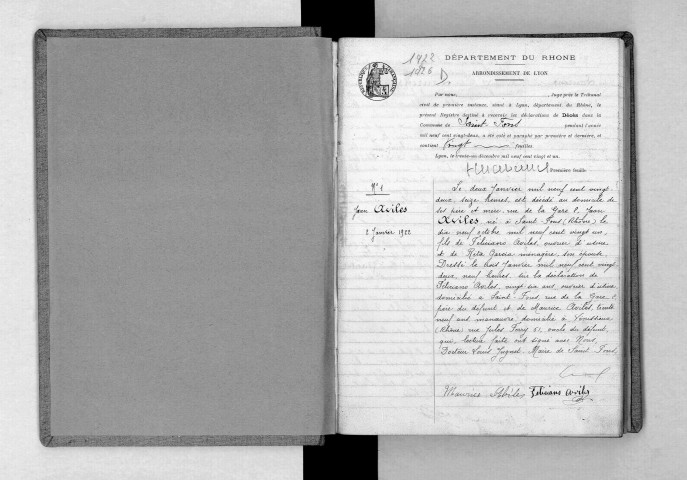 1922
1926 D
DÉPARTEMENT DU RHONE
ARRONDISSEMENT DE LYON
Par nous, Juge près le Tribunal
civil de première instance, séant à Lyon, département du Rhône, le
présent Registre destiné à recevoir les déclarations de Décès dans la
Commune de Saint-Fons pendant l'année
mil neuf cent vingt-deux, a été coté et paraphé par première et dernière, et
contient vingt feuilles
Lyon, le trente-un décembre mil neuf cent vingt et un.
Première feuille
N° 1
Jean Aviles
2 Janvier 1922
Le deux Janvier mil neuf cent vingt
deux, seize heures, est décédé au domicile de
ses père et mère, rue de la Gare 8, Jean
Aviles né à Saint-Fons (Rhône) le
dix neuf octobre mil neuf cent vingt un,
fils de Feliciano Aviles, ouvrier d'usine
et de Rita Garcia ménagère, son épouse
Dressé le trois Janvier mil neuf cent vingt
deux, neuf heures, sur la déclaration de
Feliciano Aviles, vingt six ans, ouvrier d'usine
domicilié à Saint-Fons, rue de la Gare 8,
père du défunt et de Maurice Aviles, trente
neuf ans manœuvre, domicilié à Vénissieux
(Rhône) rue Jules Ferry 61, oncle du défunt,
qui, lecture faite ont signé avec Nous,
Docteur Louis Juguet, Maire de Saint Fons.
Maurice Abiles Feliciano Aviles